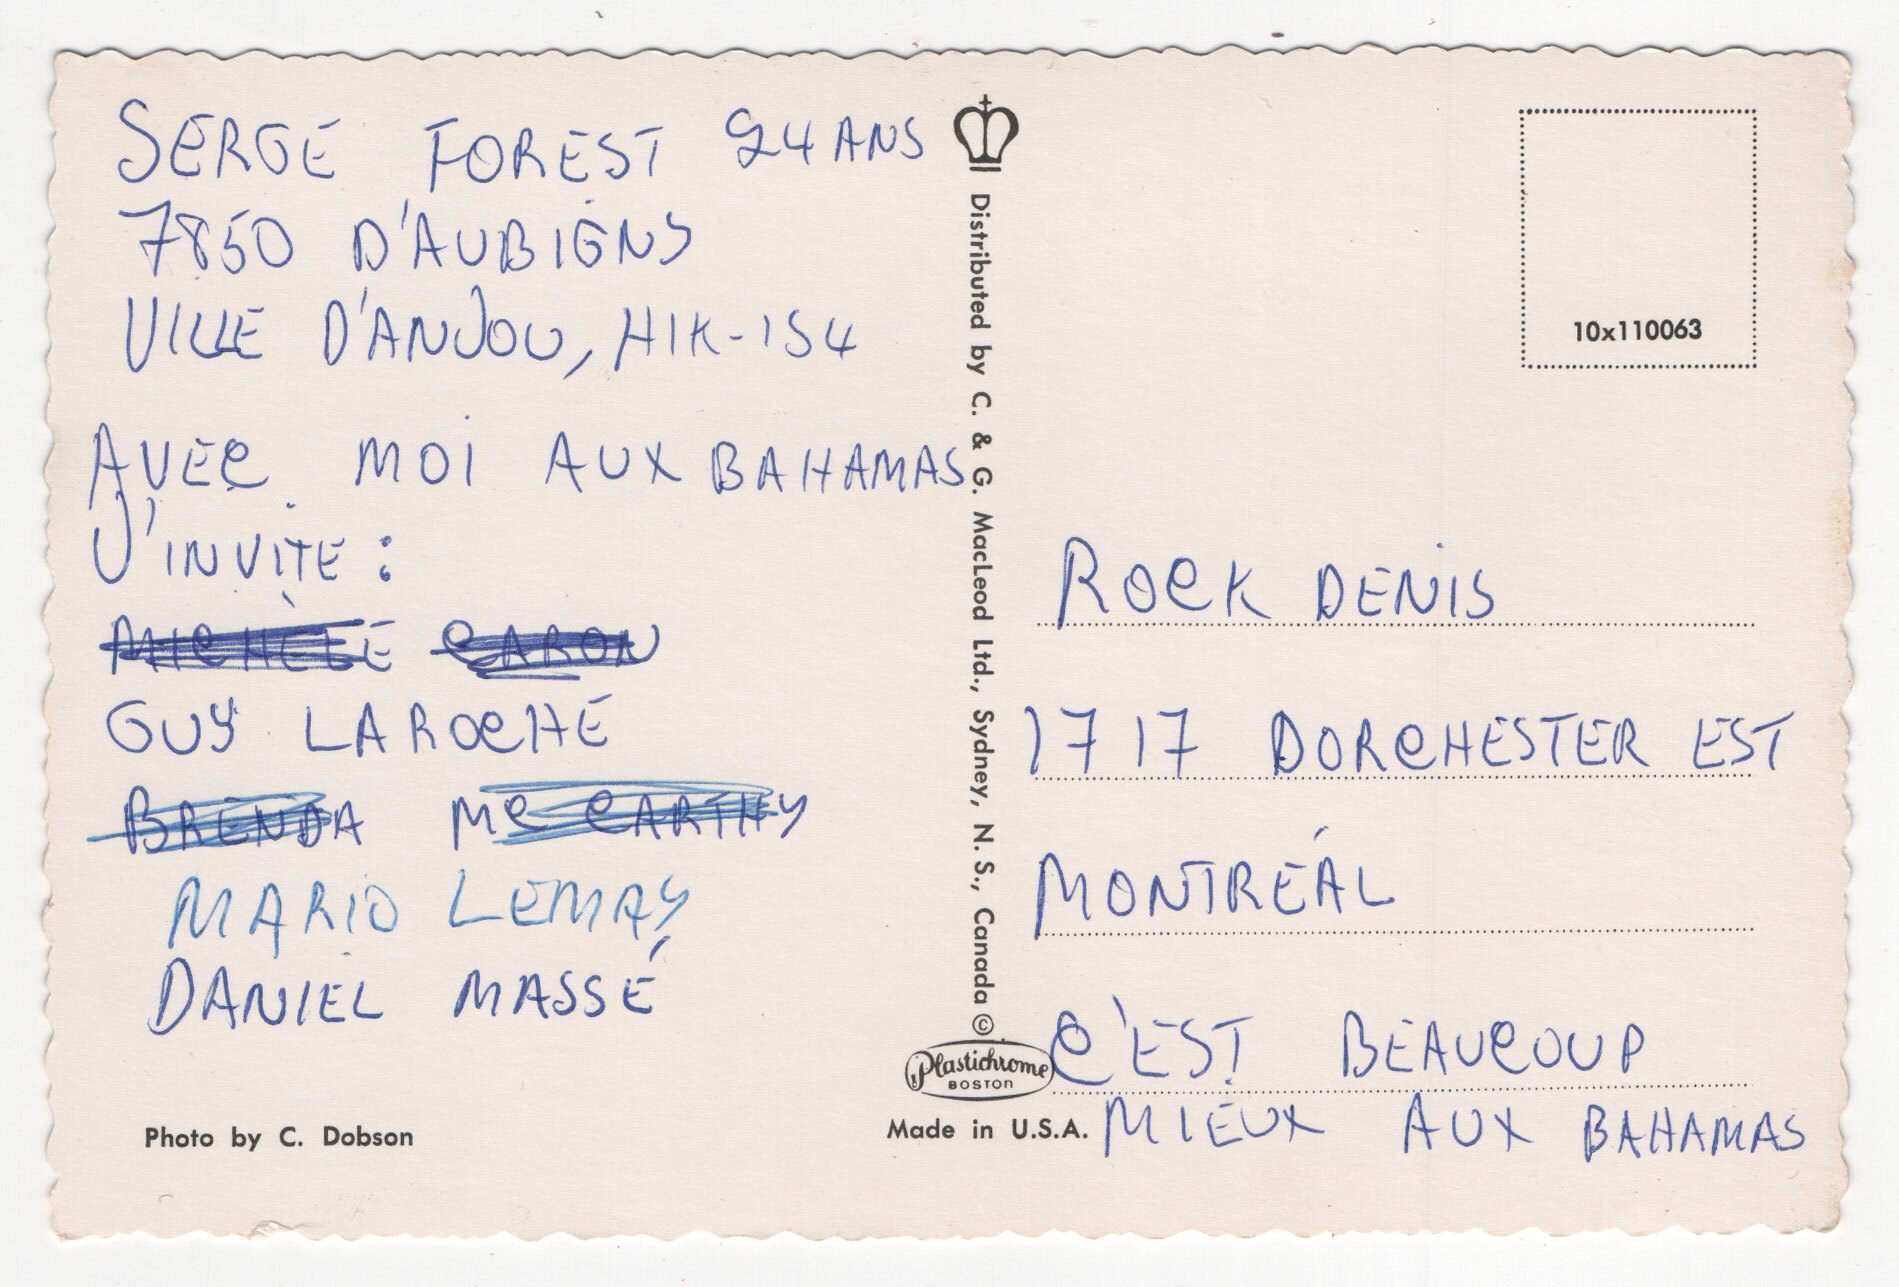 SERGE FOREST 24 ANS
7850 D'AUBIGNY
VILLE D'ANJOU, H1K-1S4
AVEC MOI AUX BAHAMAS
J'INVITE :
MICHÈLE CARON
GUY LAROCHE
BRENDA MC CARTHY
MARIO LEMAY
DANIEL MASSÉ
Photo by C. Dobson
Distributed by C. & G. MacLeod Ltd., Sydney, N. S., Canada ©
Plastichrome
BOSTON
Made in U.S.A.
10x110063
ROCK DENIS
1717 DORCHESTER EST
MONTRÉAL
C'EST BEAUCOUP
MIEUX AUX BAHAMAS